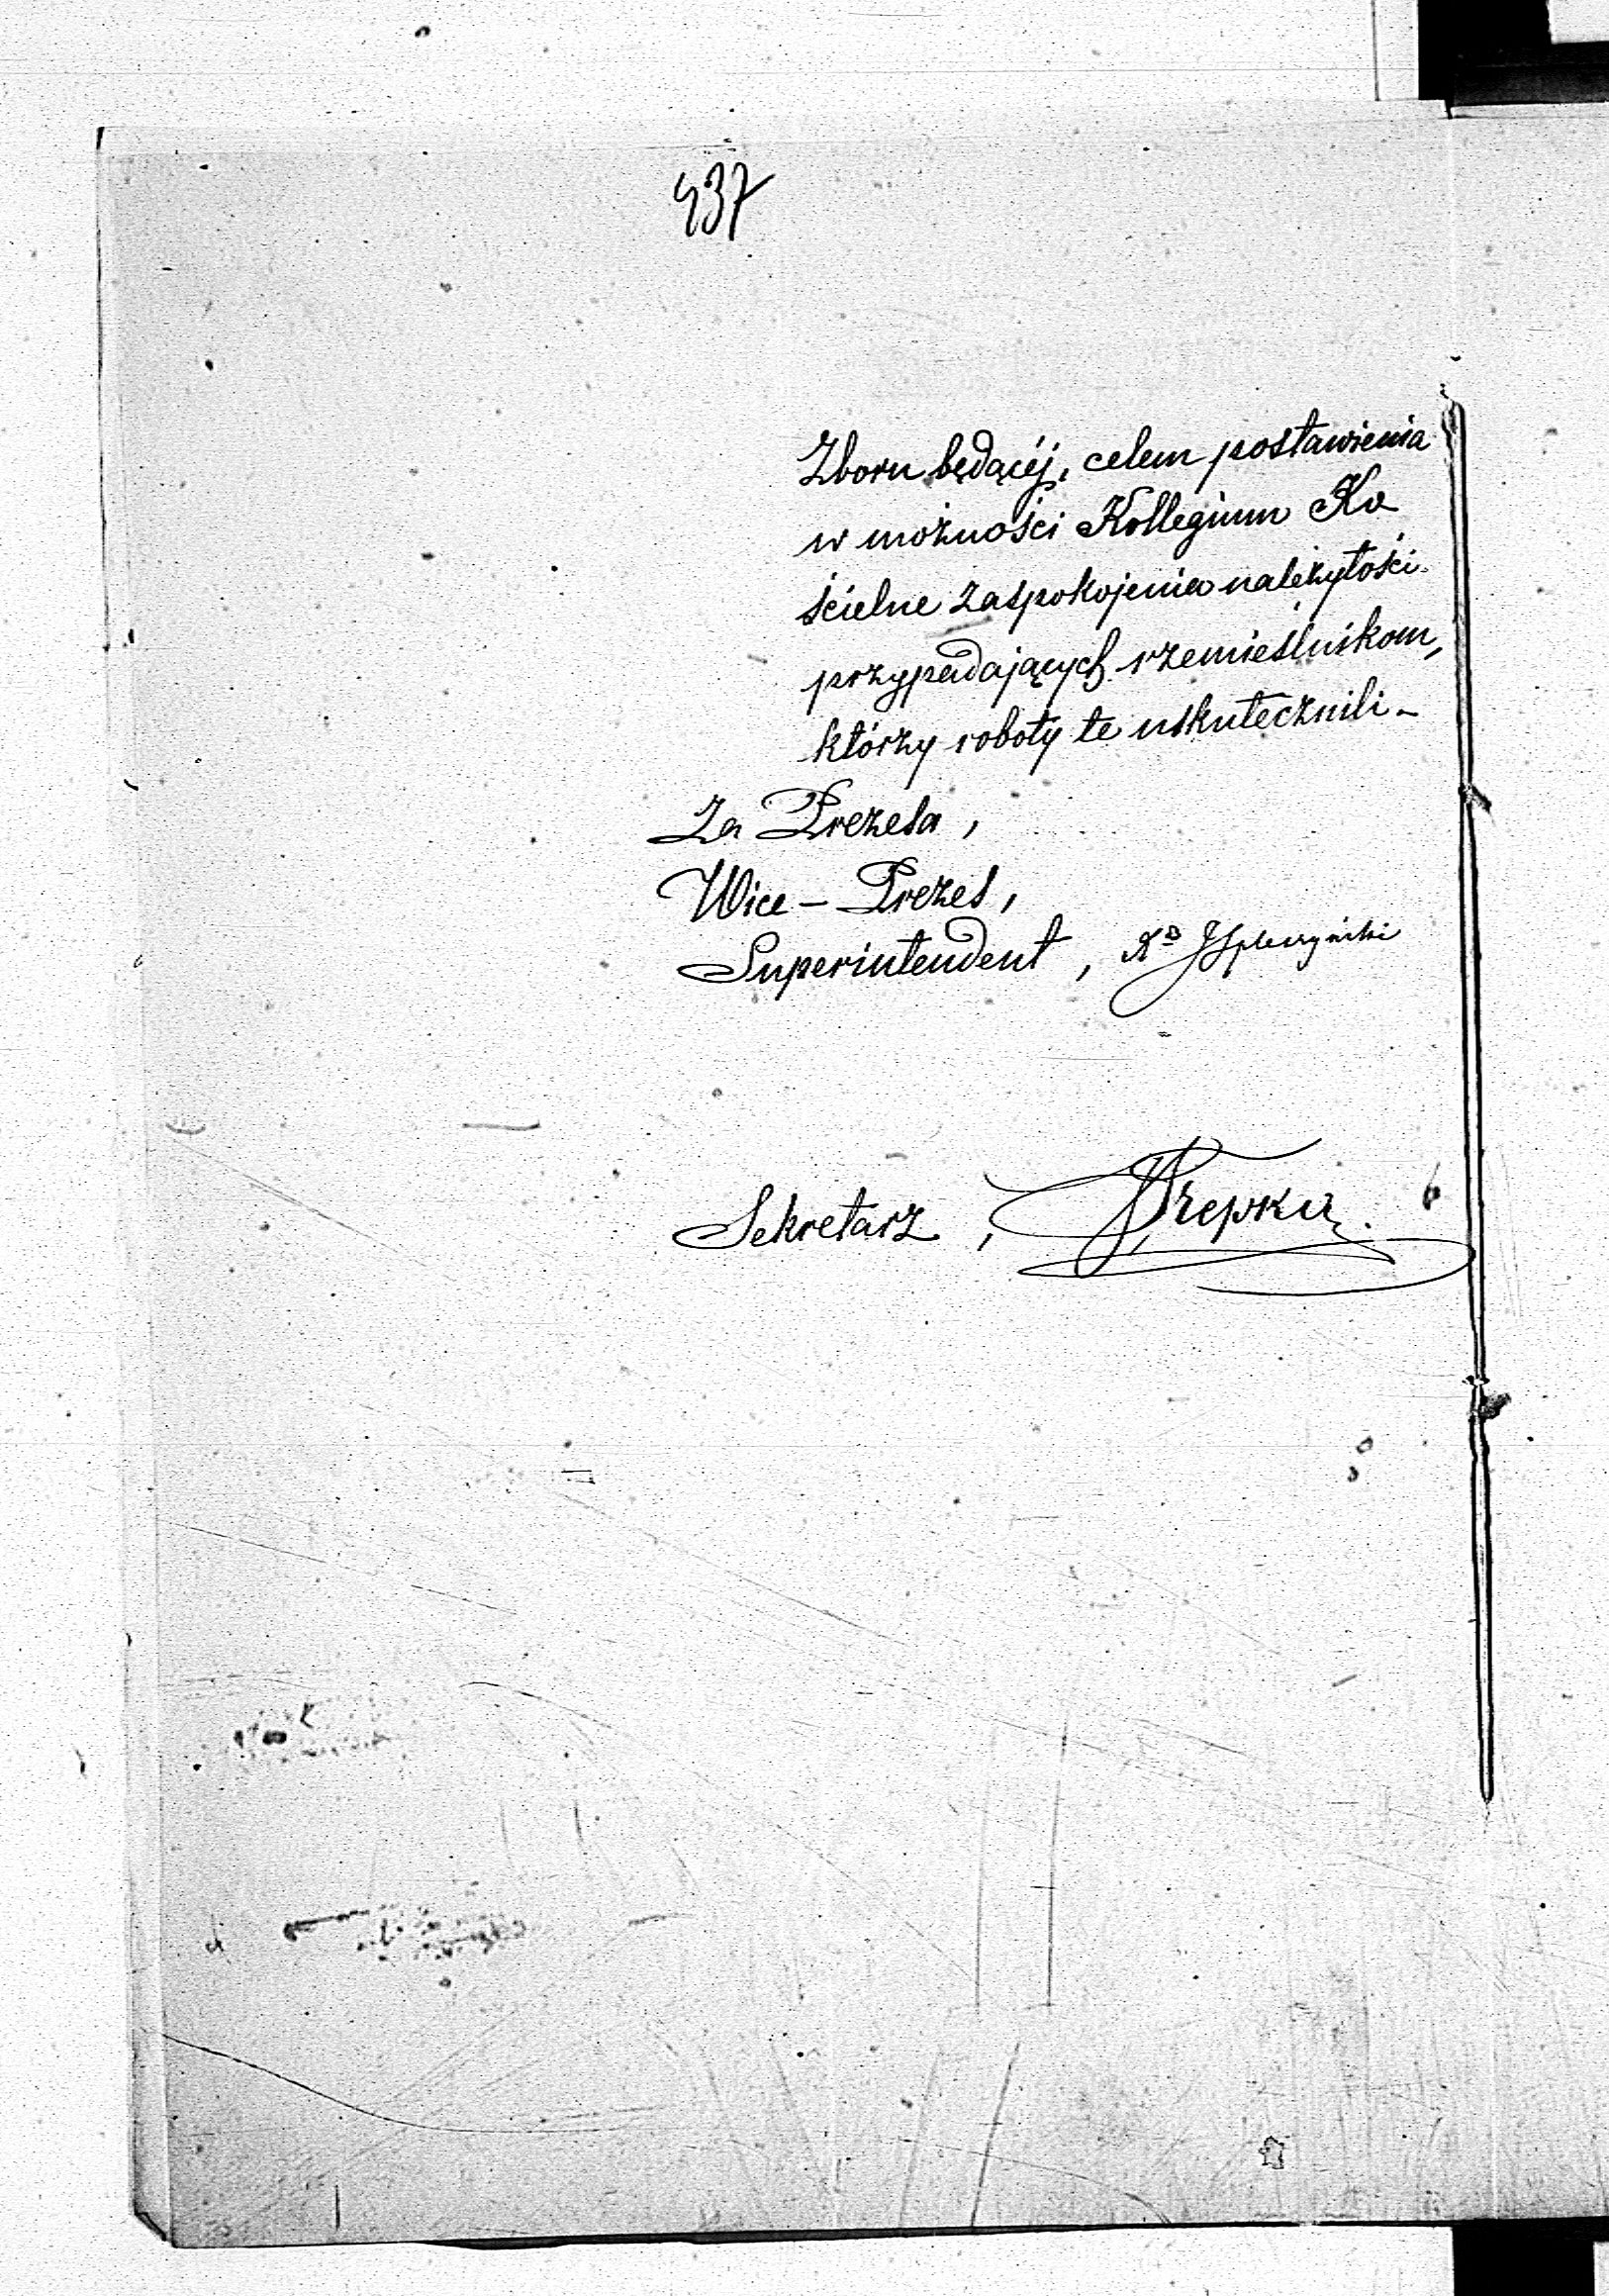 437
Zboru będącéj, celem postawienia
w możności Kollegium Ko
ścielne zaspokojenia należytości
przypadających rzemieślnikom,
którzy roboty te uskutecznili –
Za Prezesa,
Wice – Prezes,
Superintendent,
Sekretarz,